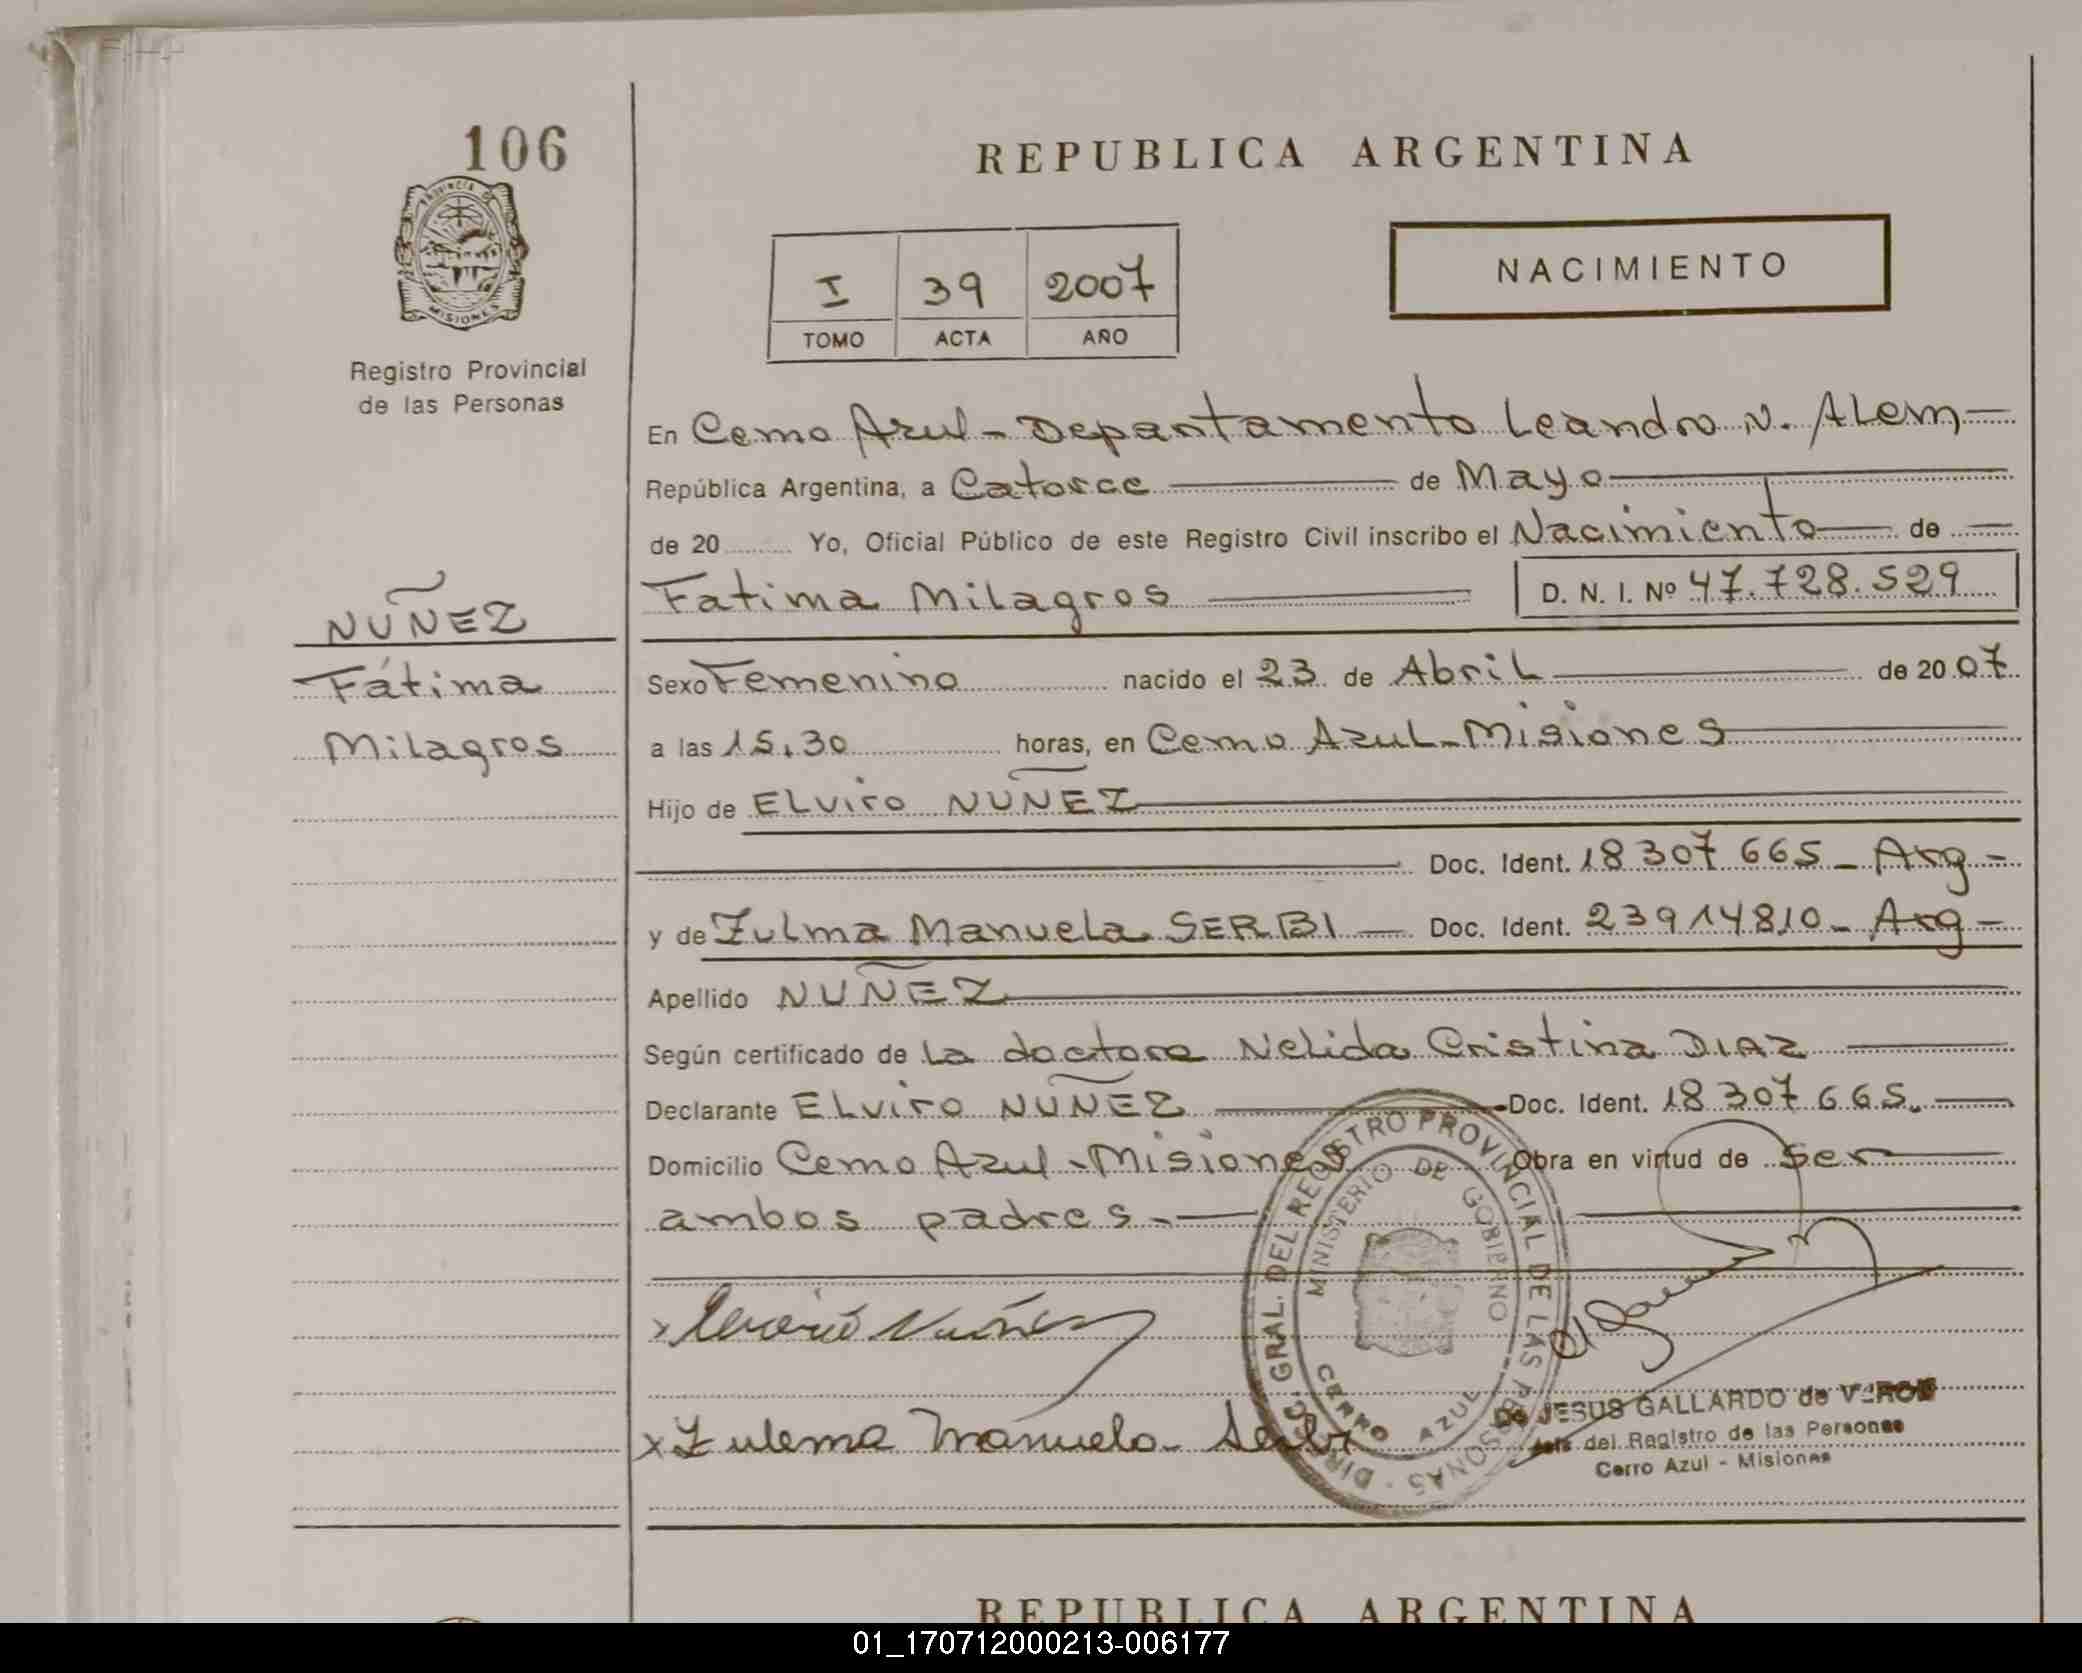 106
PROVINCIA DE
MISIONES
Registro Provincial
de las Personas
REPUBLICA ARGENTINA
I 39 2007
TOMO ACTA AÑO
NACIMIENTO
En Cerro Azul - Departamento Leandro N. Alem
República Argentina, a Catorce de Mayo
de 20 Yo, Oficial Público de este Registro Civil inscribo el Nacimiento de
Fatima Milagros D. N. I. Nº 47.728.529
NUÑEZ
Fátima
Milagros
Sexo Femenino nacido el 23 de Abril de 2007
a las 15.30 horas, en Cerro Azul - Misiones
Hijo de Elviro NUÑEZ
Doc. Ident. 18 307 665 - Arg -
y de Zulma Manuela SERBI Doc. Ident. 23914810 - Arg -
Apellido NUÑEZ
Según certificado de La doctora Nelida Cristina DIAZ
Declarante Elviro NUÑEZ Doc. Ident. 18 307 665.
Domicilio Cerro Azul - Misiones Obra en virtud de Ser
ambos padres.
x Nuñez
x Zulema Manuela Serbi
DIREC. GRAL. DEL REGISTRO PROVINCIAL DE LAS PERSONAS
MINISTERIO DE GOBIERNO
CERRO AZUL
De JESUS GALLARDO de VERON
Jefe del Registro de las Personas
Cerro Azul - Misiones
REPUBLICA ARGENTINA
01_170712000213-006177